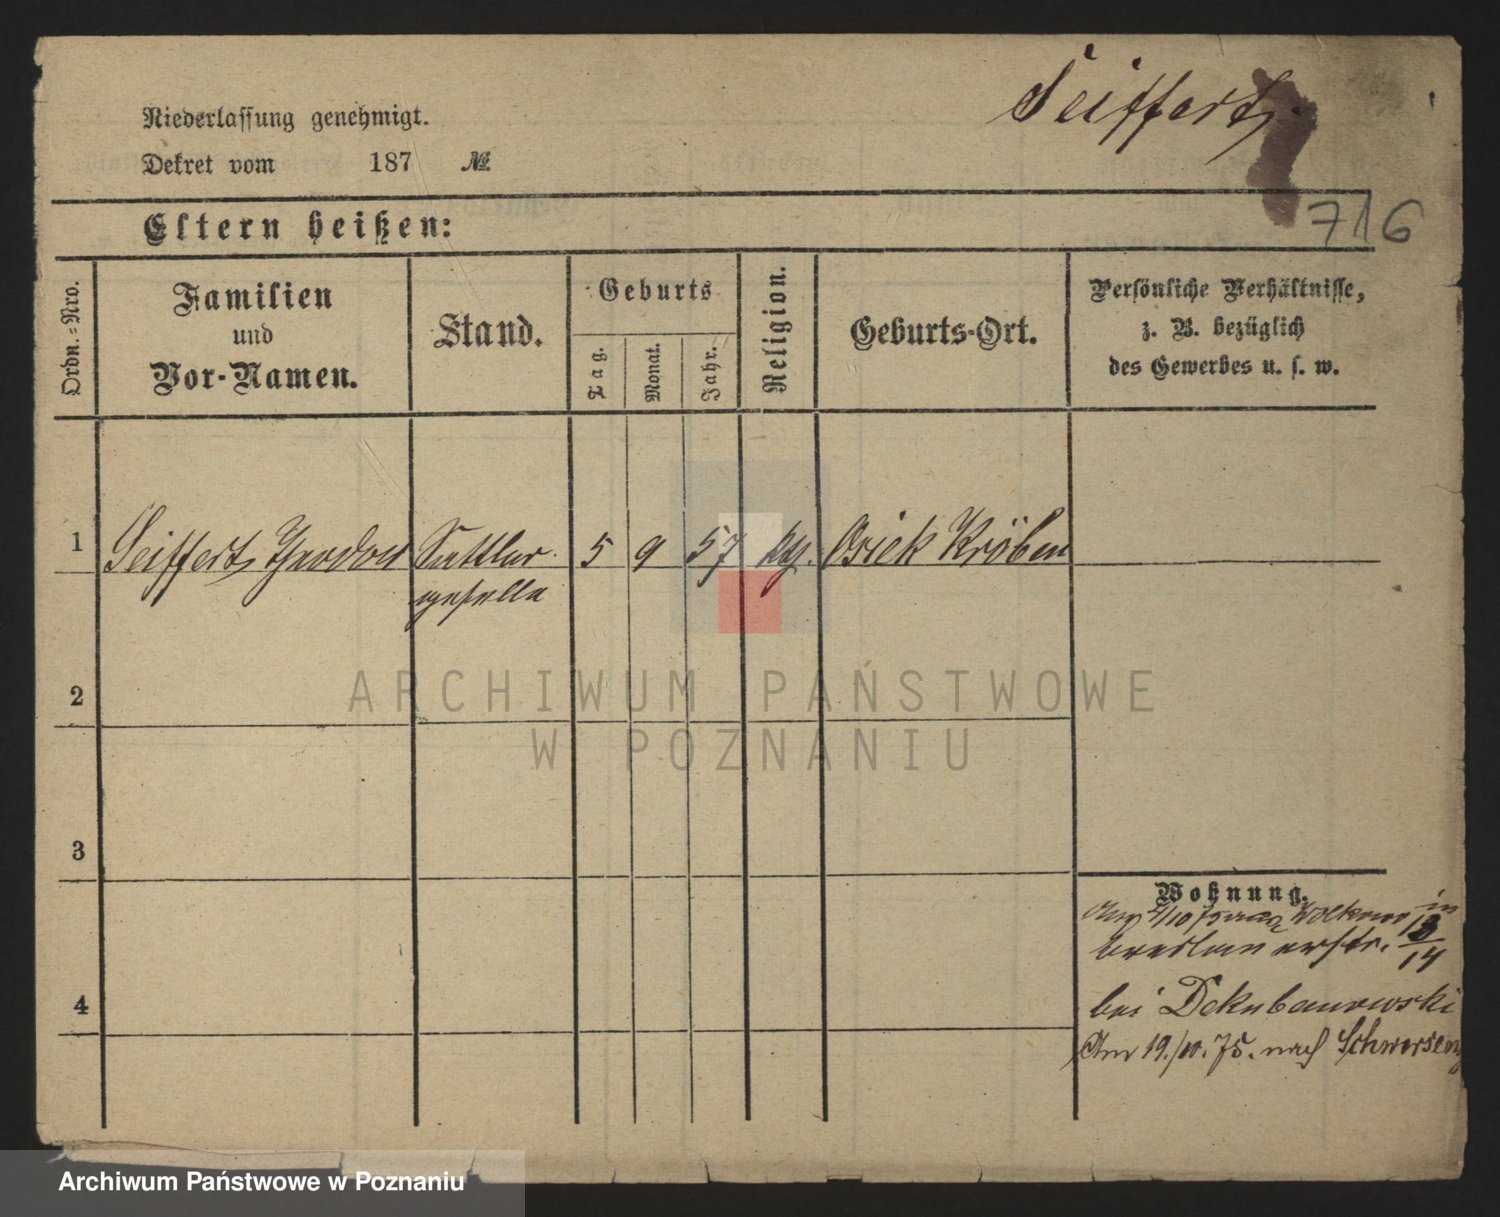 Seiffert,
Niederlassung genehmigt.
Dekret vom 187 №
716
Eltern heißen:
Ordn.=Nro.
Familien
und
Vor-Namen.
Stand.
Geburts
Tag.
Monat.
Jahr.
Religion.
Geburts-Ort.
Persönliche Verhältnisse,
z. B. bezüglich
des Gewerbes u. s. w.
1 Seiffert, Theodor Sattler 5 9 57 Osiek Kröben
geselle
2
3
4
Wohnung.
4/10 75 in
13/14
bei
Am 19./10. 75. nach Schwersenz
ARCHIWUM PAŃSTWOWE
W POZNANIU
Archiwum Państwowe w Poznaniu